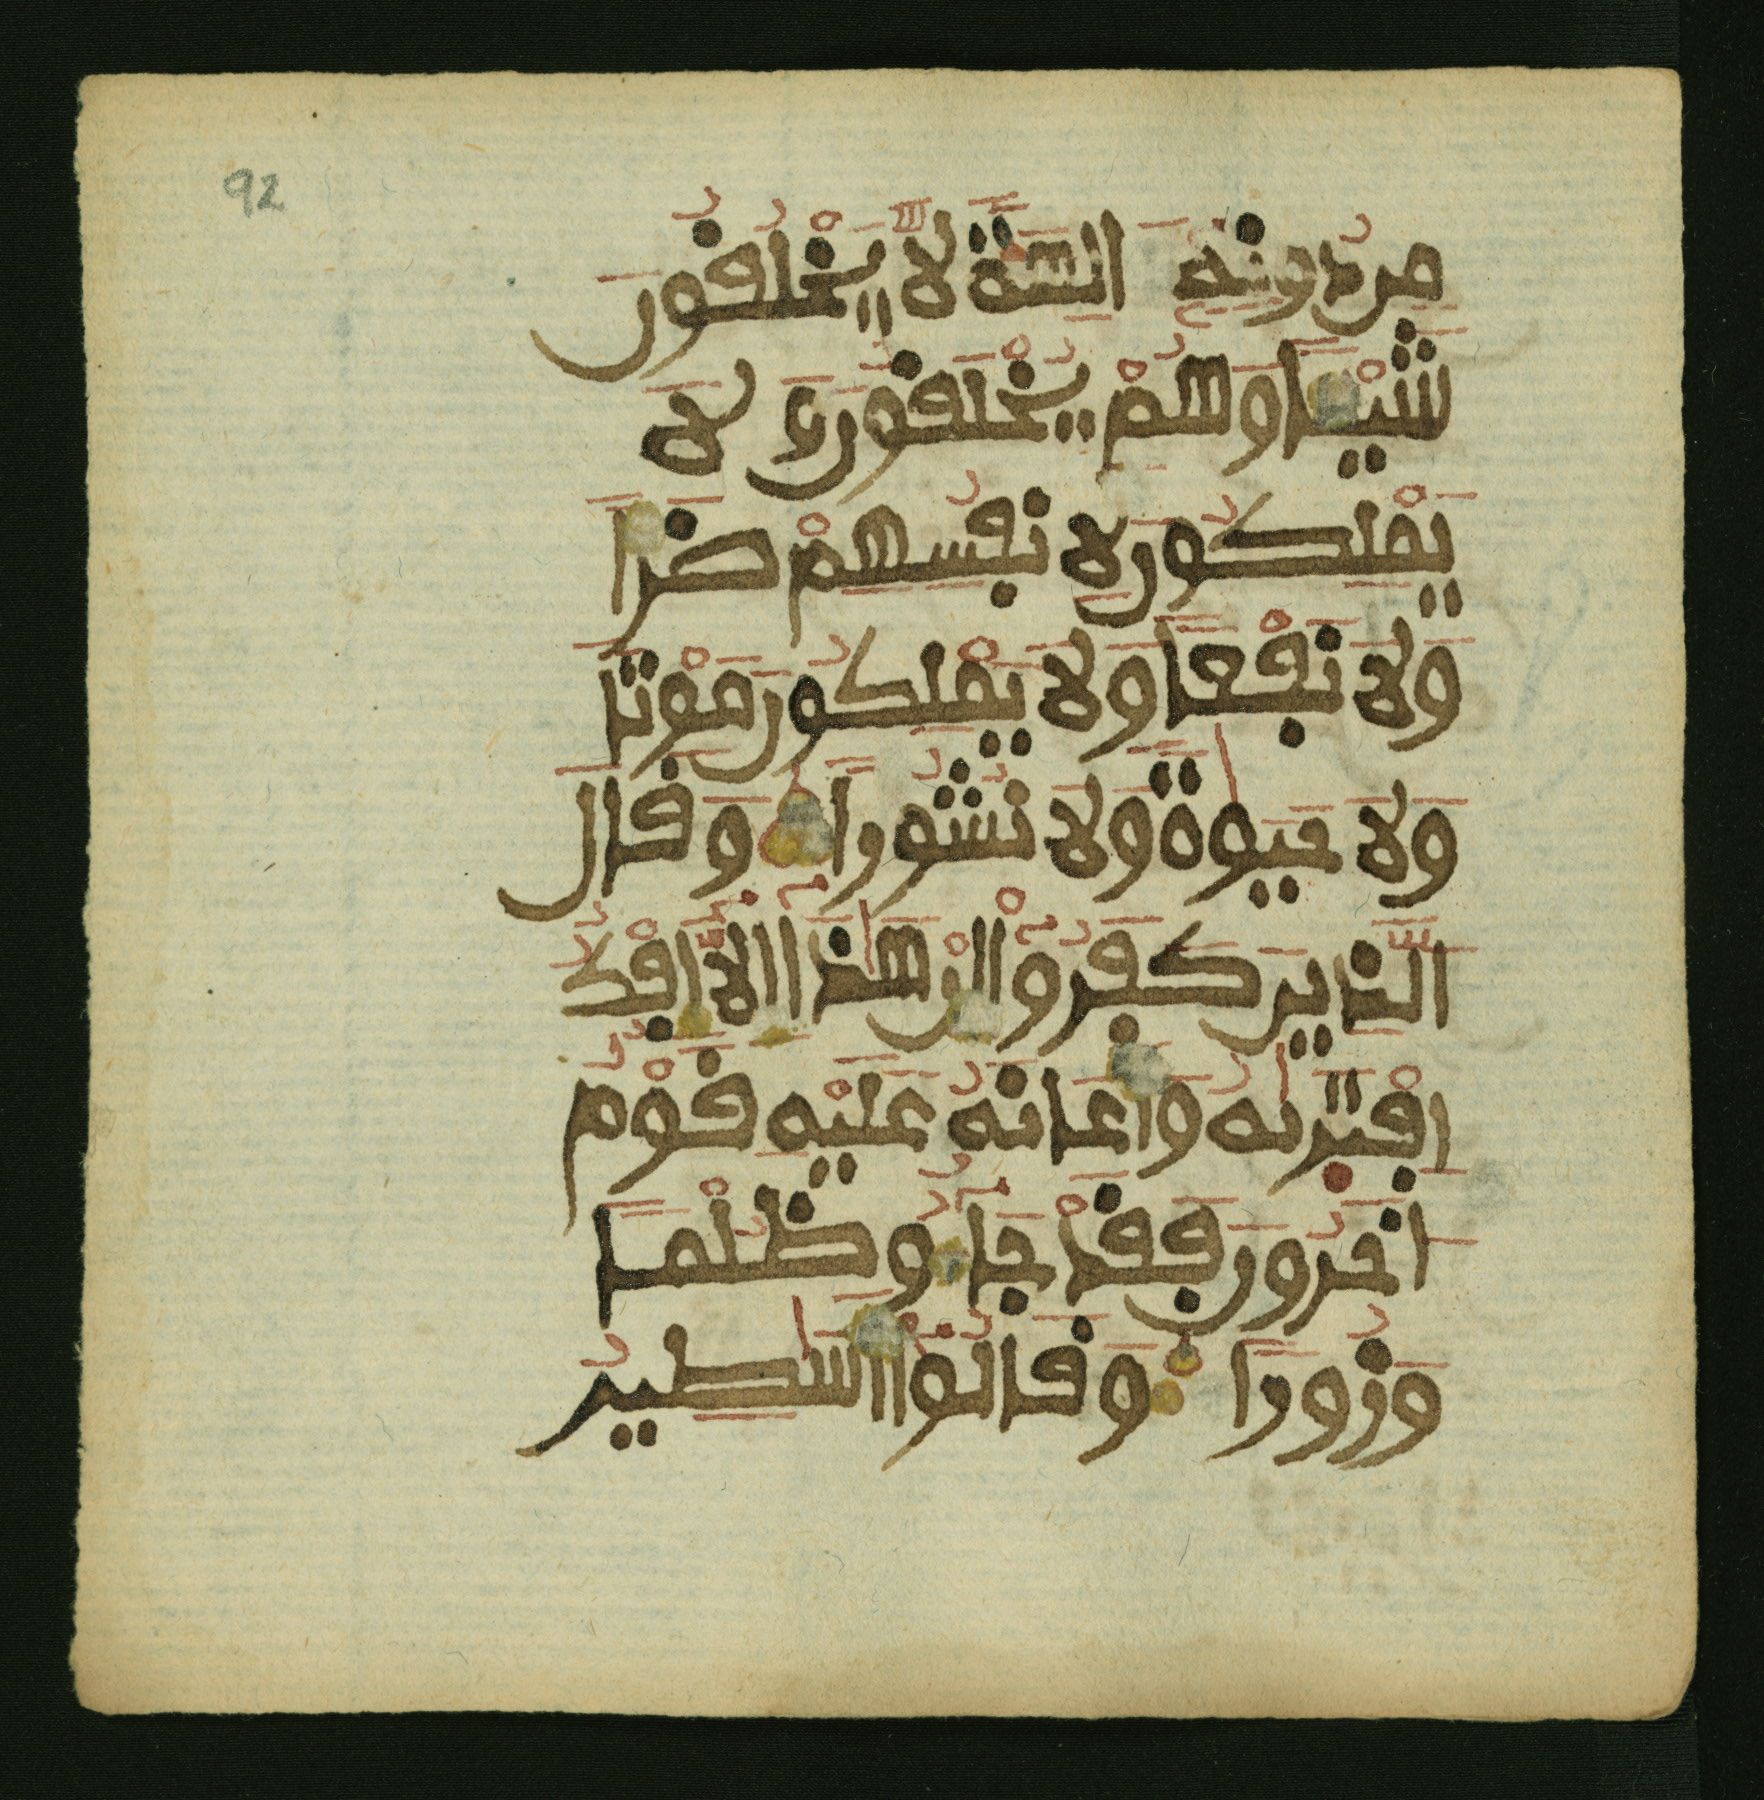 92
من دونه الهة لا يخلقون
شيا وهم يخلقون ولا
يملكون لا نفسهم ضرا
ولا نفعا ولا يملكون موتا
ولا حيوة ولا نشورا وقال
الذين كفروا ان هذا الا افك
افتريه واعانه عليه قوم
اخرون فقد جاو ظلما
وزورا وقالوا اسطير